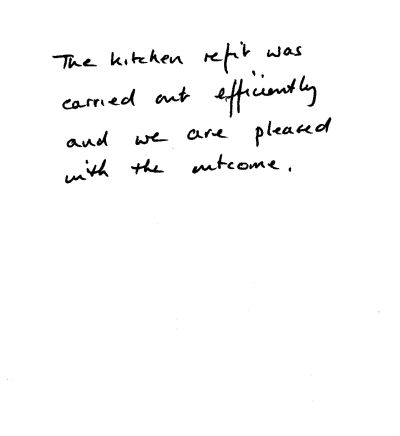 The kitchen refit was
carried out efficiently
and we are pleased
with the outcome.